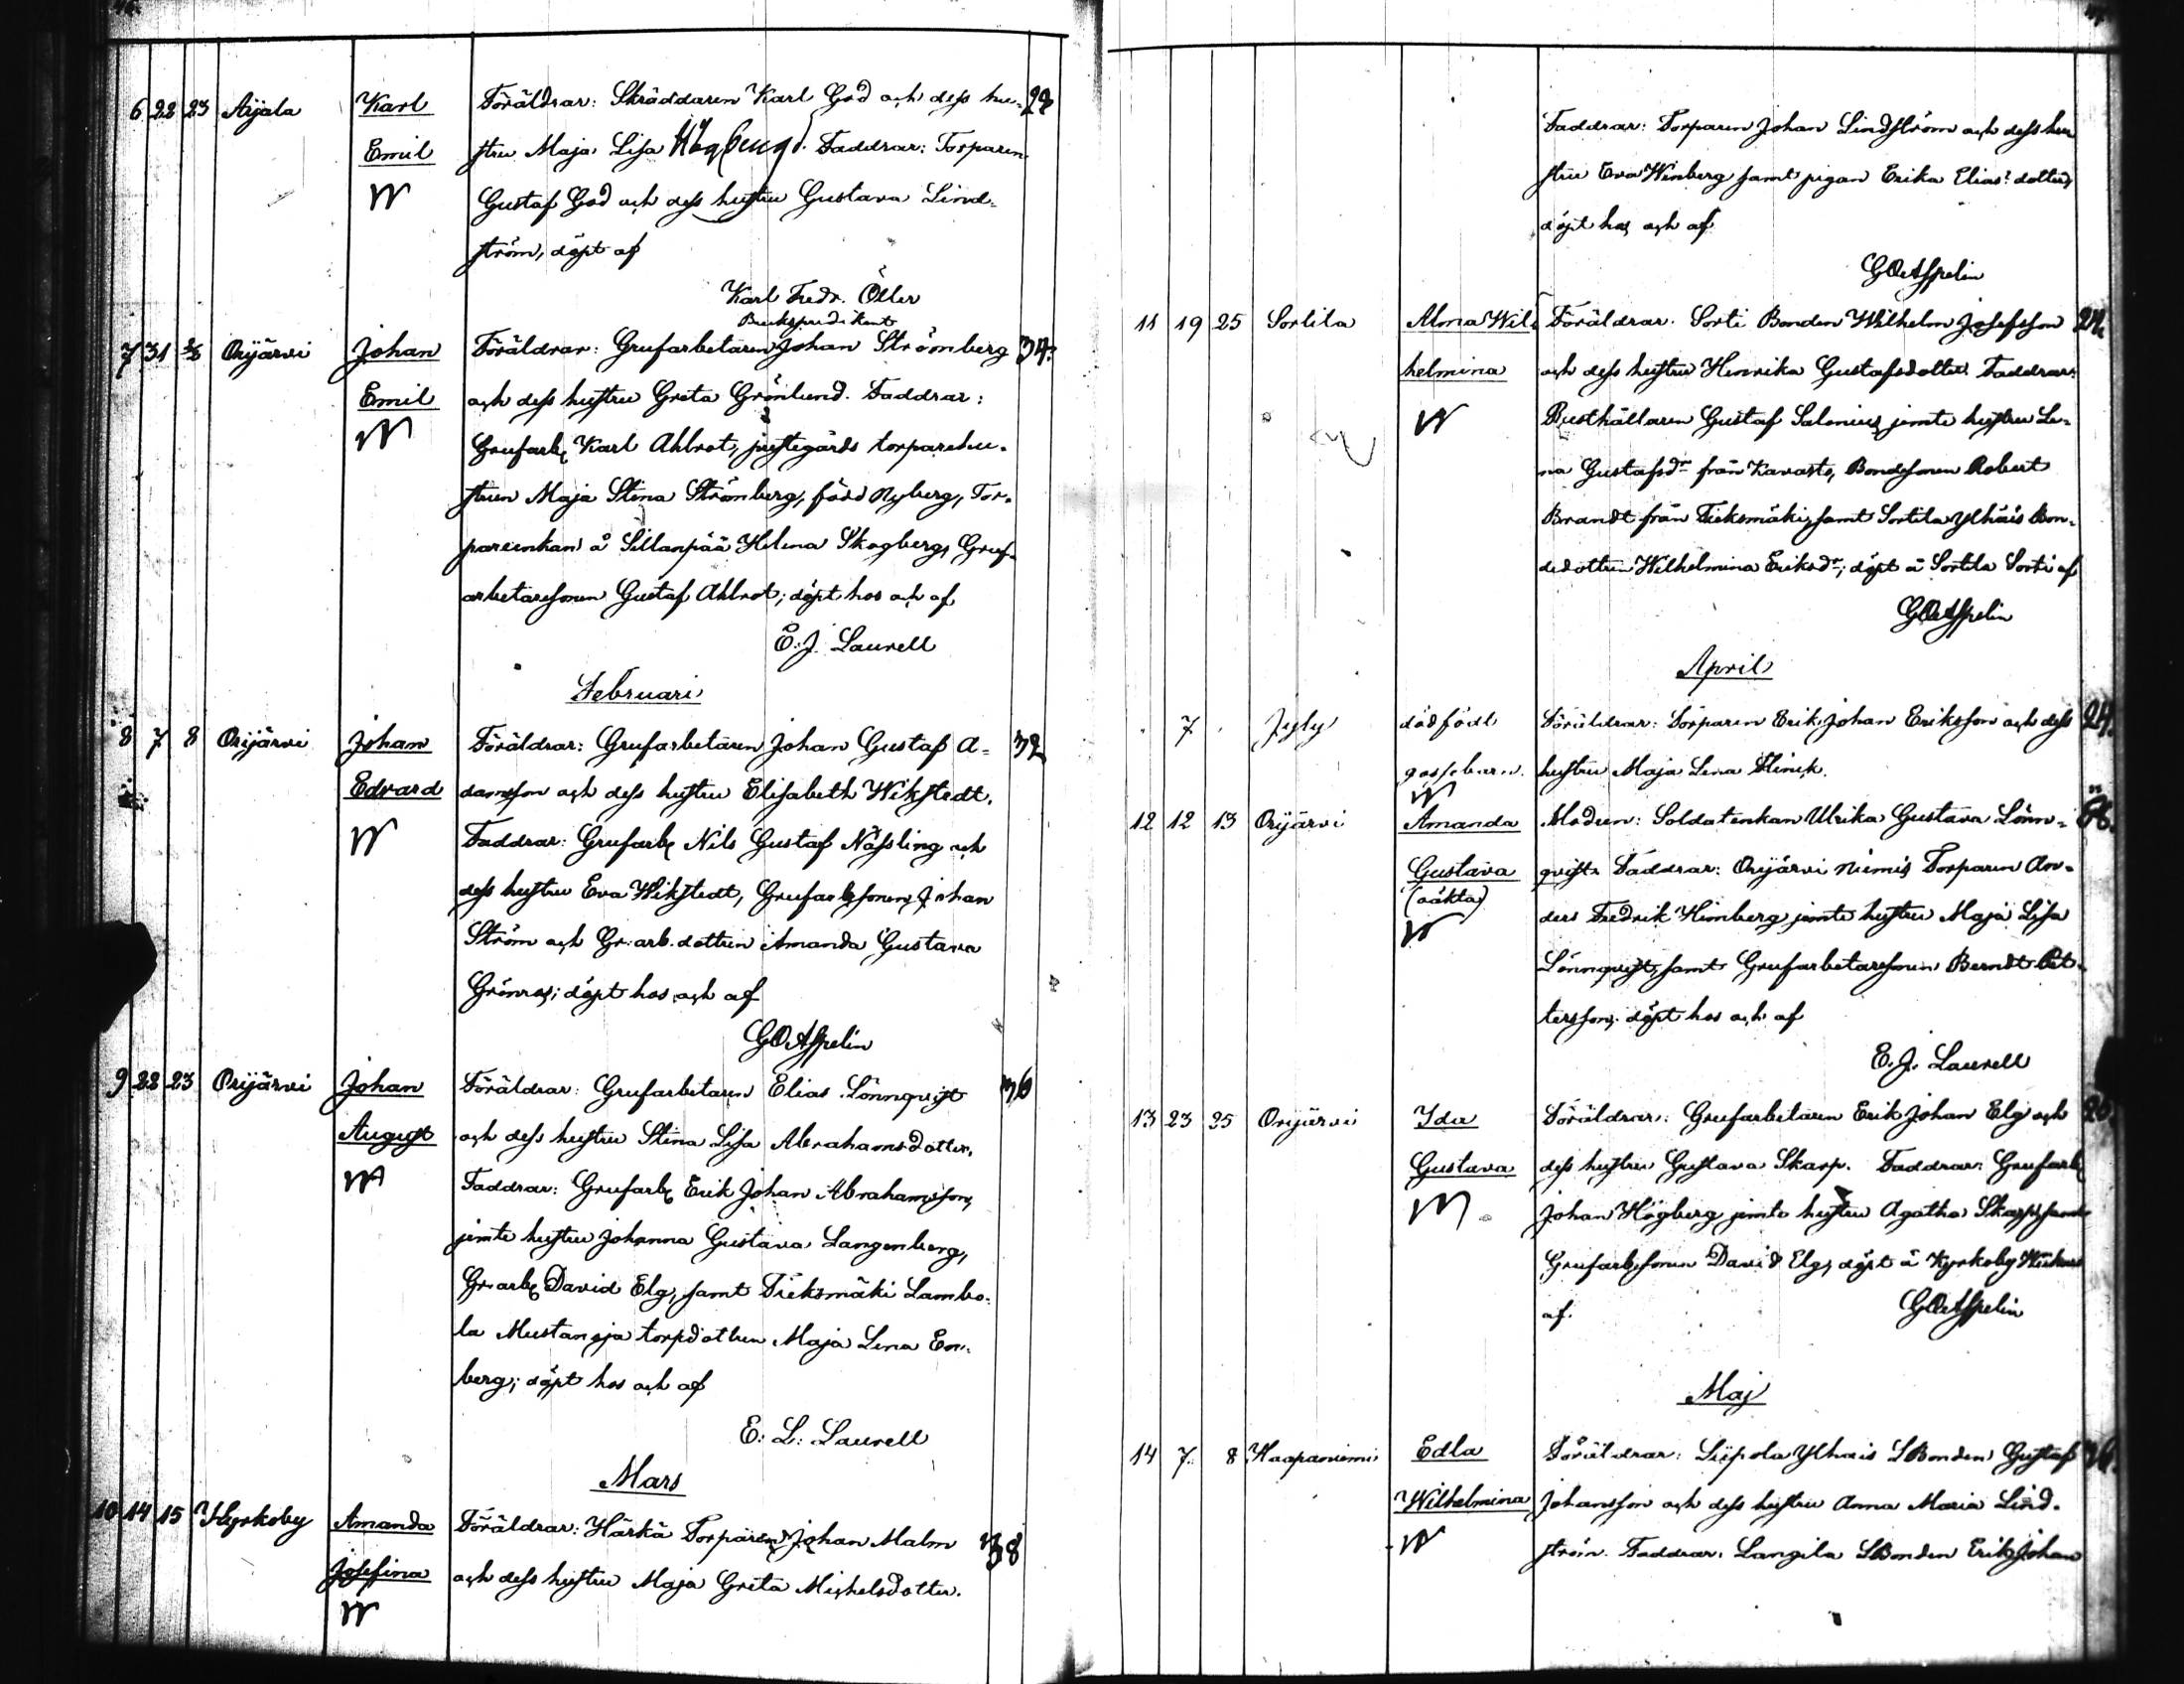 6 22 23 Aijala Karl Föräldrar: Skräddaren Karl God och dess hu- 29
Emil stru Maja Lisa Högberg. Faddrar: Torparen
Gustaf God och dess hustru Gustava Lind-
ström, döpt af
Karl Fredr. Öller
Brukspredikant
7 31 Orijärvi Johan Föräldrar: Grufarbetaren Johan Strömberg 34.
Emil och dess hustru Greta Grönlund. Faddrar:
Grufarb. Karl Ahlrot, torparehu-
strun Maja Stina Strömberg, född Nyberg, Tor-
pareenkan å Sillanpää Helena Skogberg, Gruf-
arbetaresonen Gustaf Ahlrot; döpt hos och af
E. J. Laurell
Februari
8 7 8 Orijärvi Johan Föräldrar: Grufarbetaren Johan Gustaf A- 32
Edvard damsson och dess hustru Elisabeth Wikstedt.
Faddrar: Grufarb. Nils Gustaf Nässling och
dess hustru Eva Wikstedt, Grufarb.sonen Johan
Ström och Gr.arb.dottren Amanda Gustava
Grönros; döpt hos och af
G O Aspelin
9 22 23 Orijärvi Johan Föräldrar: Grufarbetaren Elias Lönnqvist 36
August och dess hustru Stina Lisa Abrahamsdotter.
Faddrar: Grufarb. Erik Johan Abrahamsson,
jemte hustru Johanna Gustava Langenberg,
Gr.arb. David Elg, samt Tieksmäki Lambo-
la Mustanoja torpdottren Maja Lena En-
berg; döpt hos och af
E. L. Laurell
Mars
10 14 15 Kyrkoby Amanda Föräldrar: Härkä Torparen Johan Malm 38
Josefina och dess hustru Maja Greta Michelsdotter.
Faddrar: Torparen Johan Lindström och dess hu
stru Eva Winberg samt pigan Erika Eliasdotter,
döpt hos och af
G O Aspelin
11 19 25 Sortila Alma Wil- Föräldrar. Sorti Bonden Wilhelm Josefsson 24.
helmina och dess hustru Henrika Gustafsdotter. Faddrar:
Rusthållaren Gustaf Salenius jemte hustru Le-
na Gustafsdr från Kavasto, Bondesonen Robert
Brandt från Tieksmäki, samt Sortila Ylhäis Bon-
dedottren Wilhelmina Eriksdr; döpt å Sortila Sorti af
G O Aspelin
April
7 Jyly dödfödt Föräldrar: Torparen Erik Johan Eriksson och dess 24.
gossebarn. hustru Maja Lena
12 12 13 Orijärvi Amanda Modren: Soldatenkan Ulrika Gustava Lönn-
Gustava qvist. Faddrar: Orijärvi Niemis Torparen An-
(oäkta) ders Fredrik Himberg jemte hustru Maja Lisa
Lönnqvist, samt Grufarbetaresonen Berndt Pet-
tersson; döpt hos och af
E. J. Laurell
13 23 25 Orijärvi Ida Föräldrar: Grufarbetaren Erik Johan Elg och
Gustava dess hustru Gustava Skarp. Faddrar: Grufarb.
Johan Högberg jemte hustru Agatha Skarp, samt
Grufarb.sonen David Elg, döpt å Kyrkoby
af. G O Aspelin
Maj
14 7 8 Haapaniemi Edla Föräldrar: Liipola Ylhäis Bonden Gustaf
Wilhelmina Johansson och dess hustru Anna Maria Lind-
ström. Faddrar: Langila Bonden Erik Johan